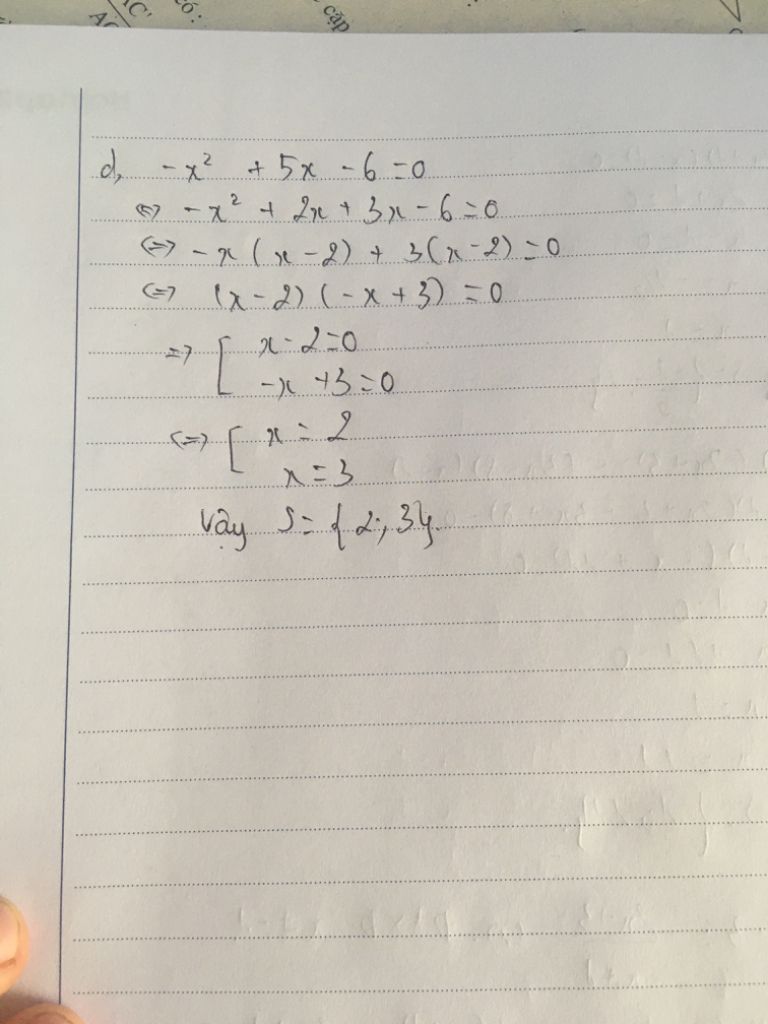 AC'
có :
c cặp
d, -x² + 5x - 6 = 0
<=> -x² + 2x + 3x - 6 = 0
<=> -x(x-2) + 3(x-2) = 0
<=> (x-2)(-x+3) = 0
=> [ x-2=0
-x+3=0
<=> [ x = 2
x = 3
Vậy S = {2; 3}.